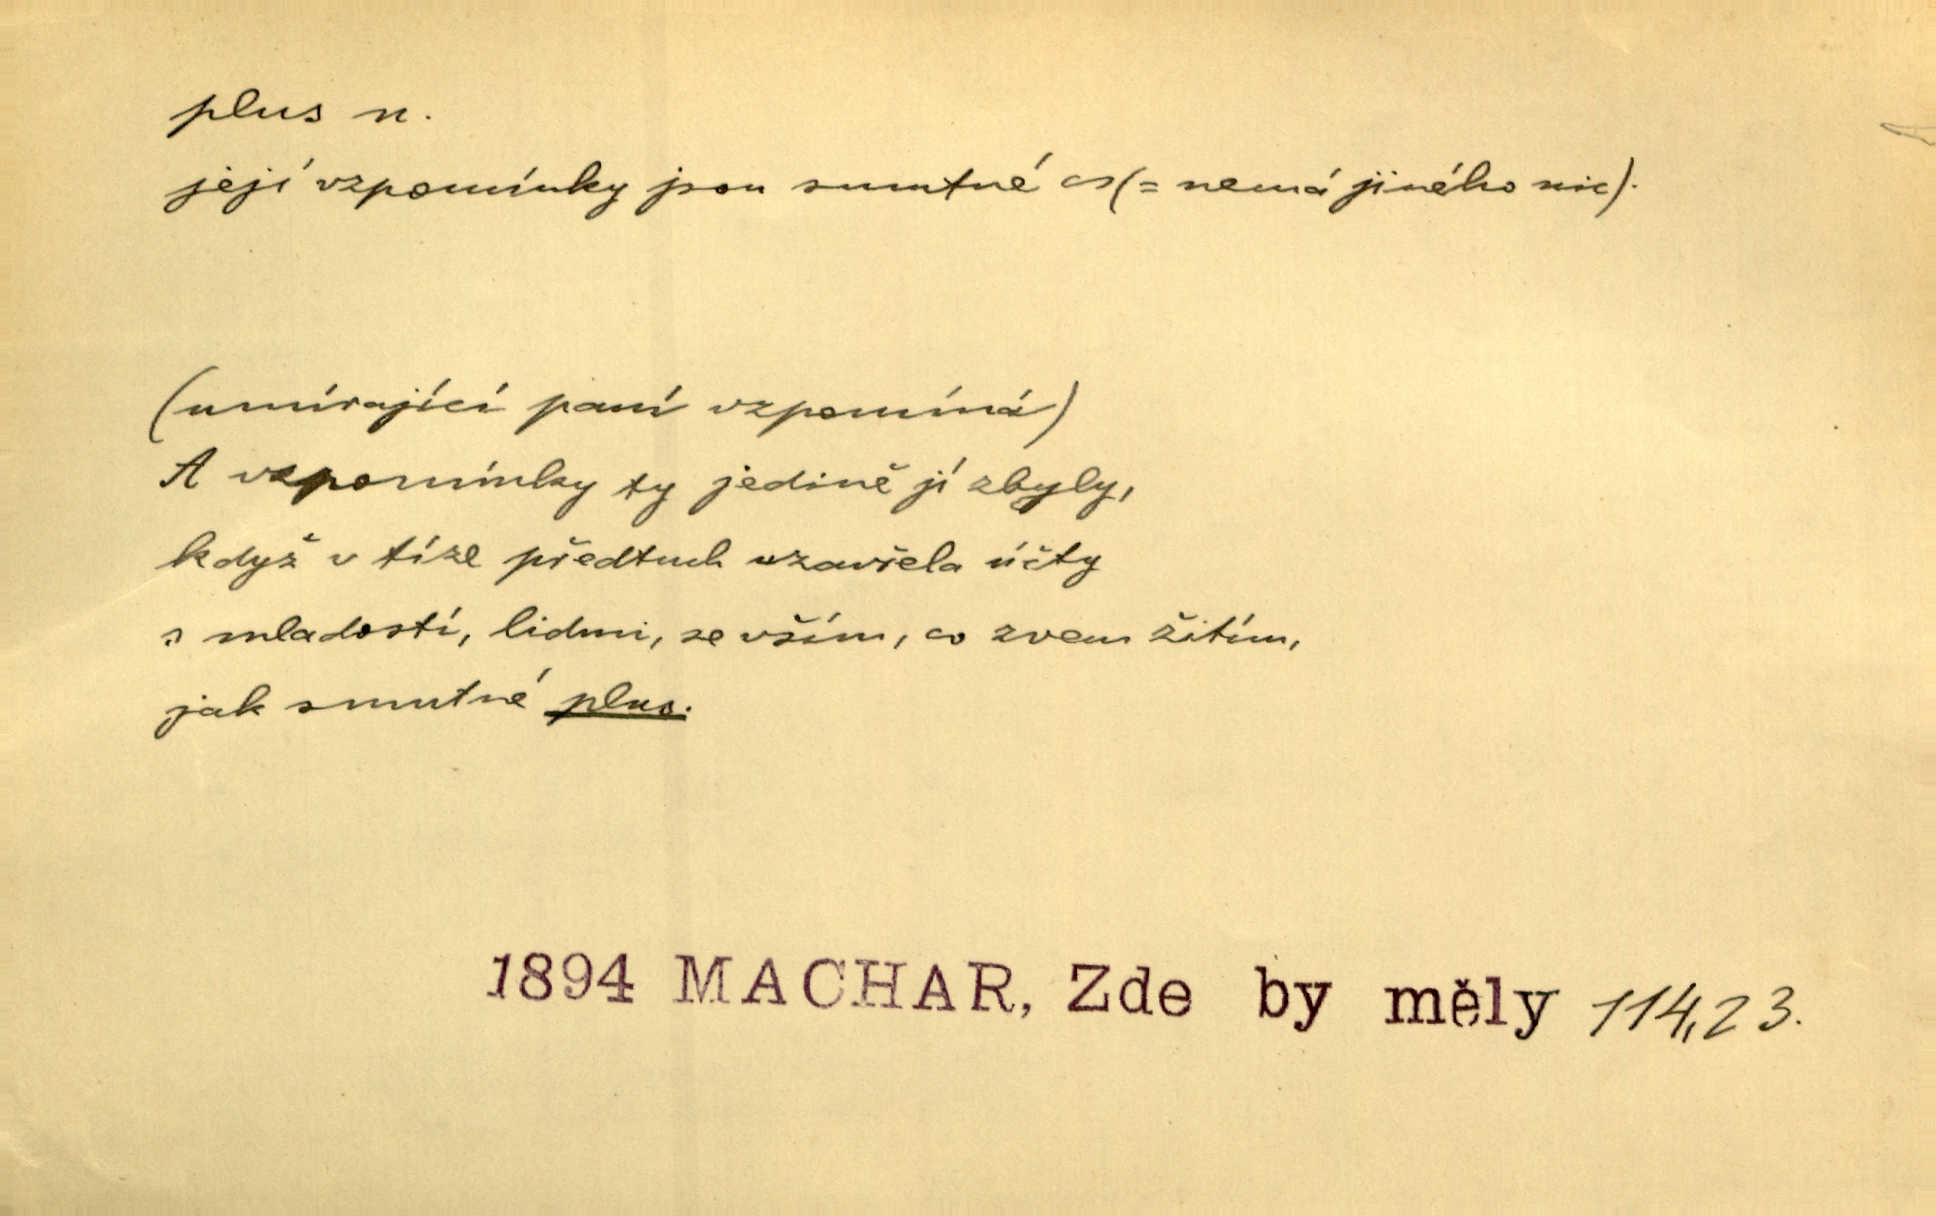 plus n.
její vzpomínky jsou smutné ∽ (= nemá jiného nic).
(umírající paní vzpomíná)
A vzpomínky ty jedině jí zbyly,
když v tíze předtuch uzavřela účty
s mladostí, lidmi, se vším, co zvem žitím,
jak smutné plus.
1894 MACHAR, Zde by měly 114,23.